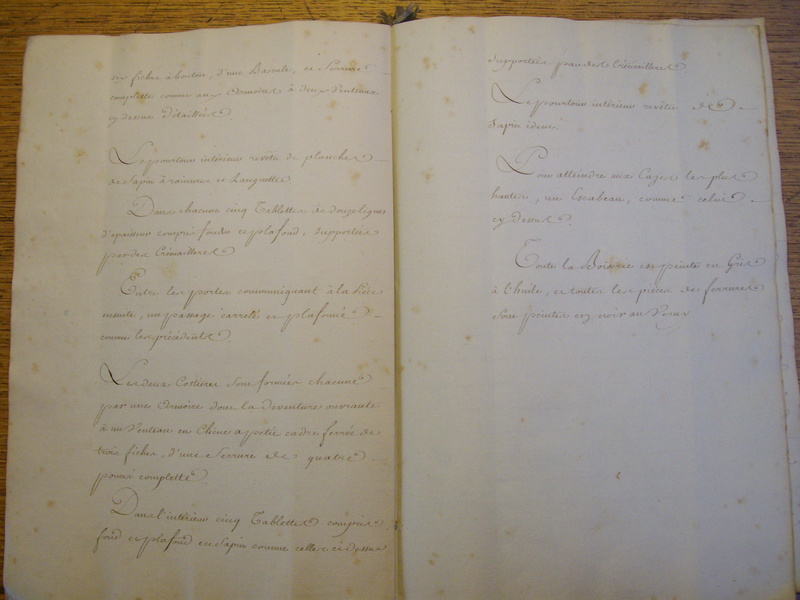 six fiches à bouton, d'une Bascule, et Serrure
complette comme aux Armoires à deux Venteaux
cy dessus détaillées.
Le pourtour intérieur revêtu de planches
de Sapin à rainures et Languettes
Dans chacune cinq Tablettes de douze lignes
d'épaisseur compris fonds et plafond, supportées
par des Crémaillères
Entre les portes communiquant à la Pièce
ensuite, un passage carrelé et plafonné
comme les précédents.
Les deux Costières sont formées chacune
par une Armoire dont la Deventure ouvrante
à un Venteau en Chêne a petit cadre ferrée de
trois fiches, d'une Serrure de quatre
pouces complette
Dans l'intérieur cinq Tablettes compris
fond et plafond en Sapin comme celles ci dessus
supportées par des Crémaillères
Le pourtour intérieur revêtu de
Sapin idem
Pour atteindre aux Cases les plus
hautes, un Escabeau, comme celui
cy dessus.
Toute la Boiserie est peinte en Gris
à l'huile, et toutes les pièces de ferrures
sont peintes en noir au Vernis